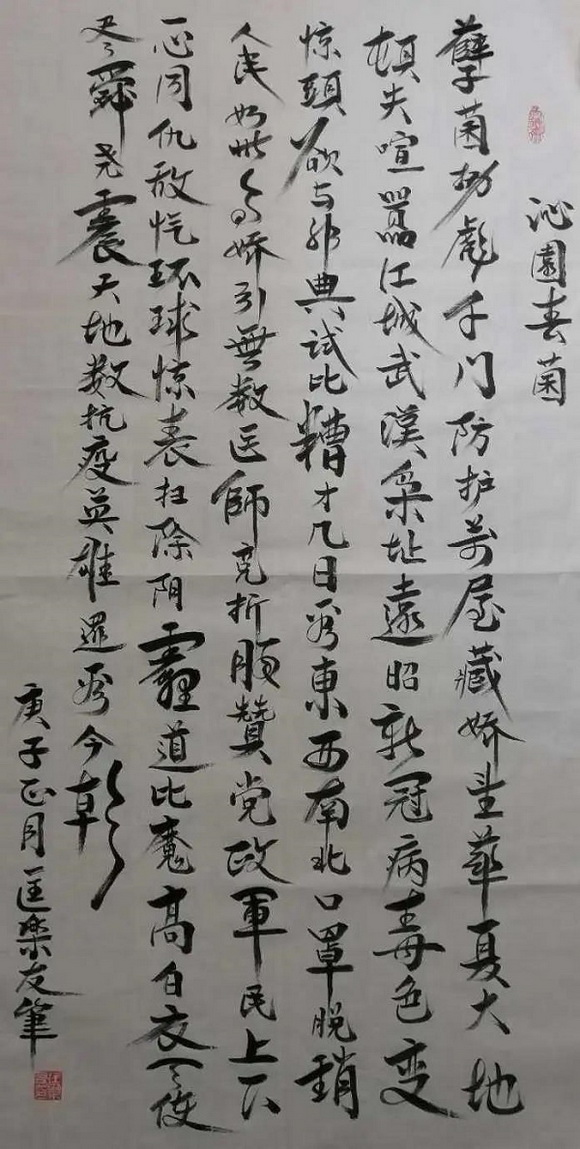 沁園春菌
孽菌彪千门防护萬屋藏娇望華夏大地
頓失喧嚣江城武漢枭址遠昭新冠病毒色变
惊頭欲与非典試比糟才几日看東西南北口罩脱销
人民如此多娇引無数医師竞折腰贊党政軍民上下
心同仇敌忾环球惊表扫除阴霾道比魔高白衣天使
尽舜尧震天地数抗疫英雄還看今朝
庚子正月匡樂友筆